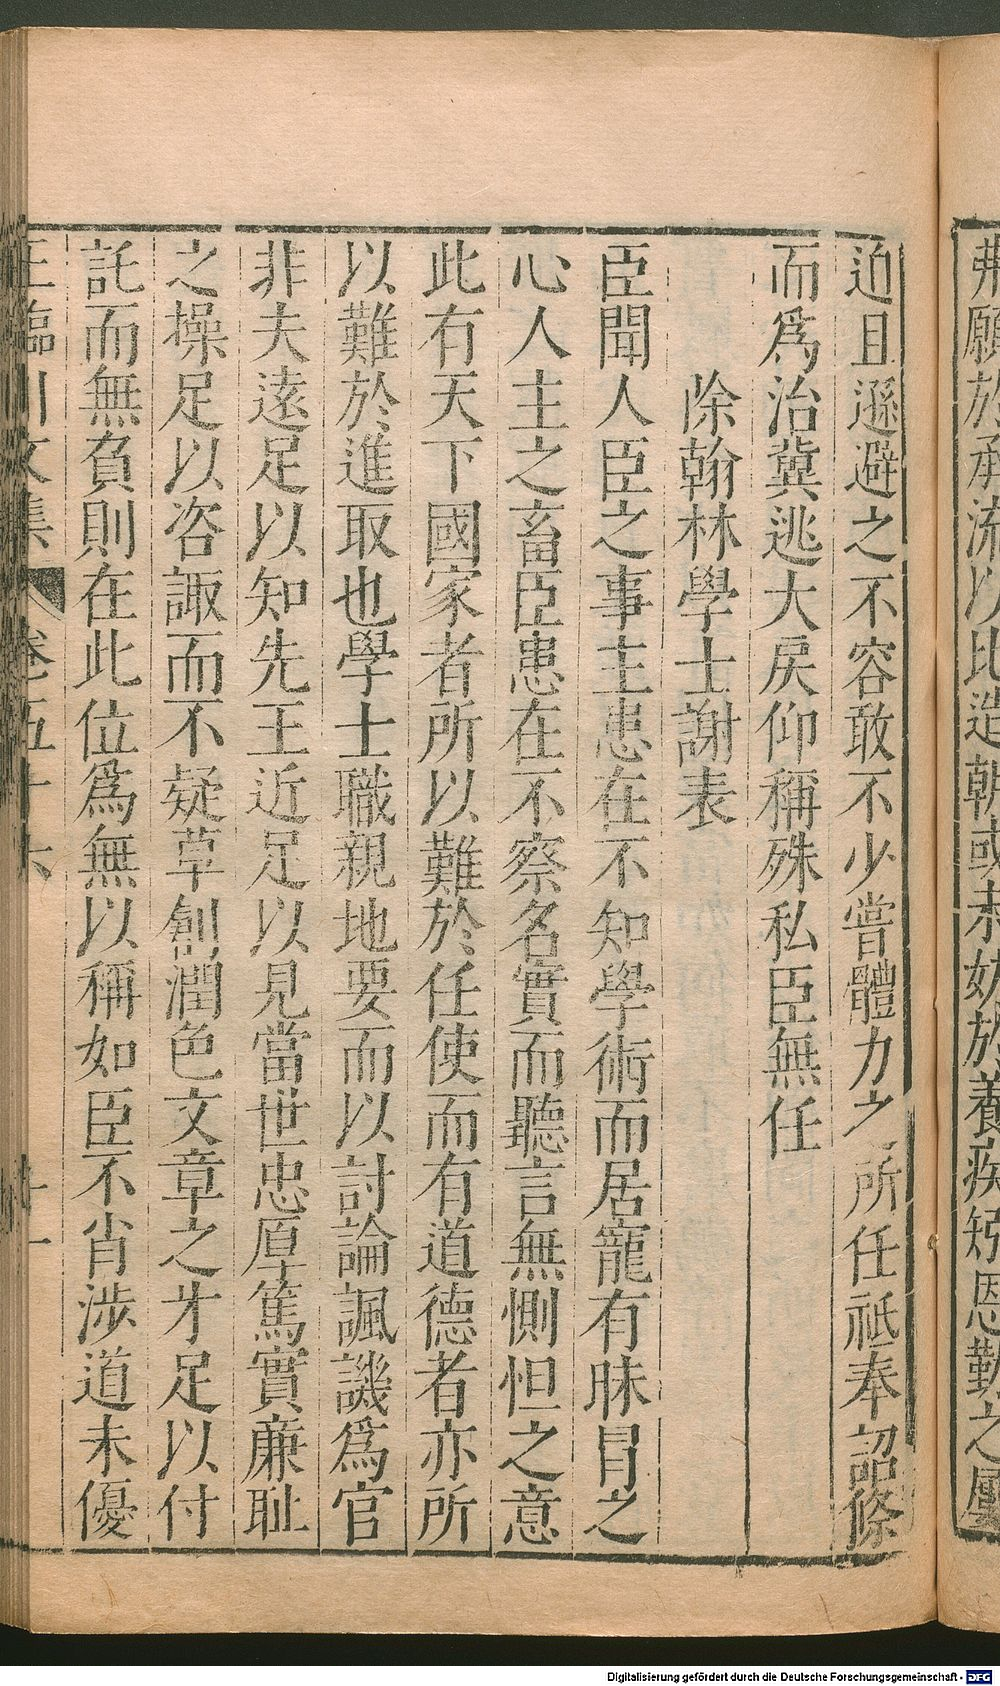 弗願於承流以比造朝或未妨於養疾矧恩勤之屢
迫且遜避之不容敢不少嘗體力之所任祗奉詔條
而爲治冀逃大戾仰稱殊私臣無任
除翰林學士謝表
臣聞人臣之事主患在不知學術而居寵有昧冒之
心人主之畜臣患在不察名實而聽言無惻怛之意
此有天下國家者所以難於任使而有道德者亦所
以難於進取也學士職親地要而以討論諷譏爲官
非夫遠足以知先王近足以見當世忠厚篤實廉恥
之操足以咨諏而不疑草創潤色文章之才足以付
託而無負則在此位爲無以稱如臣不肖涉道未優
王臨川文集 卷五十六 十一
Digitalisierung gefördert durch die Deutsche Forschungsgemeinschaft - DFG